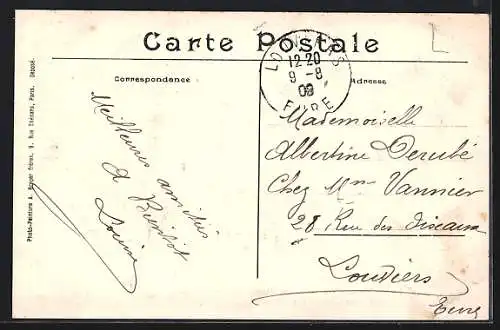 Carte Postale
Correspondance
Adresse
LOUVIERS
12-20
9-8
09
EURE
Meilleures amitiés
à Bientôt
Louise
Mademoiselle
Albertine
Chez Mme Vannier
28 Rue des Oiseaux
Louviers
Eure
Photo-Peinture A. Breger Frères, 9, Rue Thénard, Paris. Déposé.